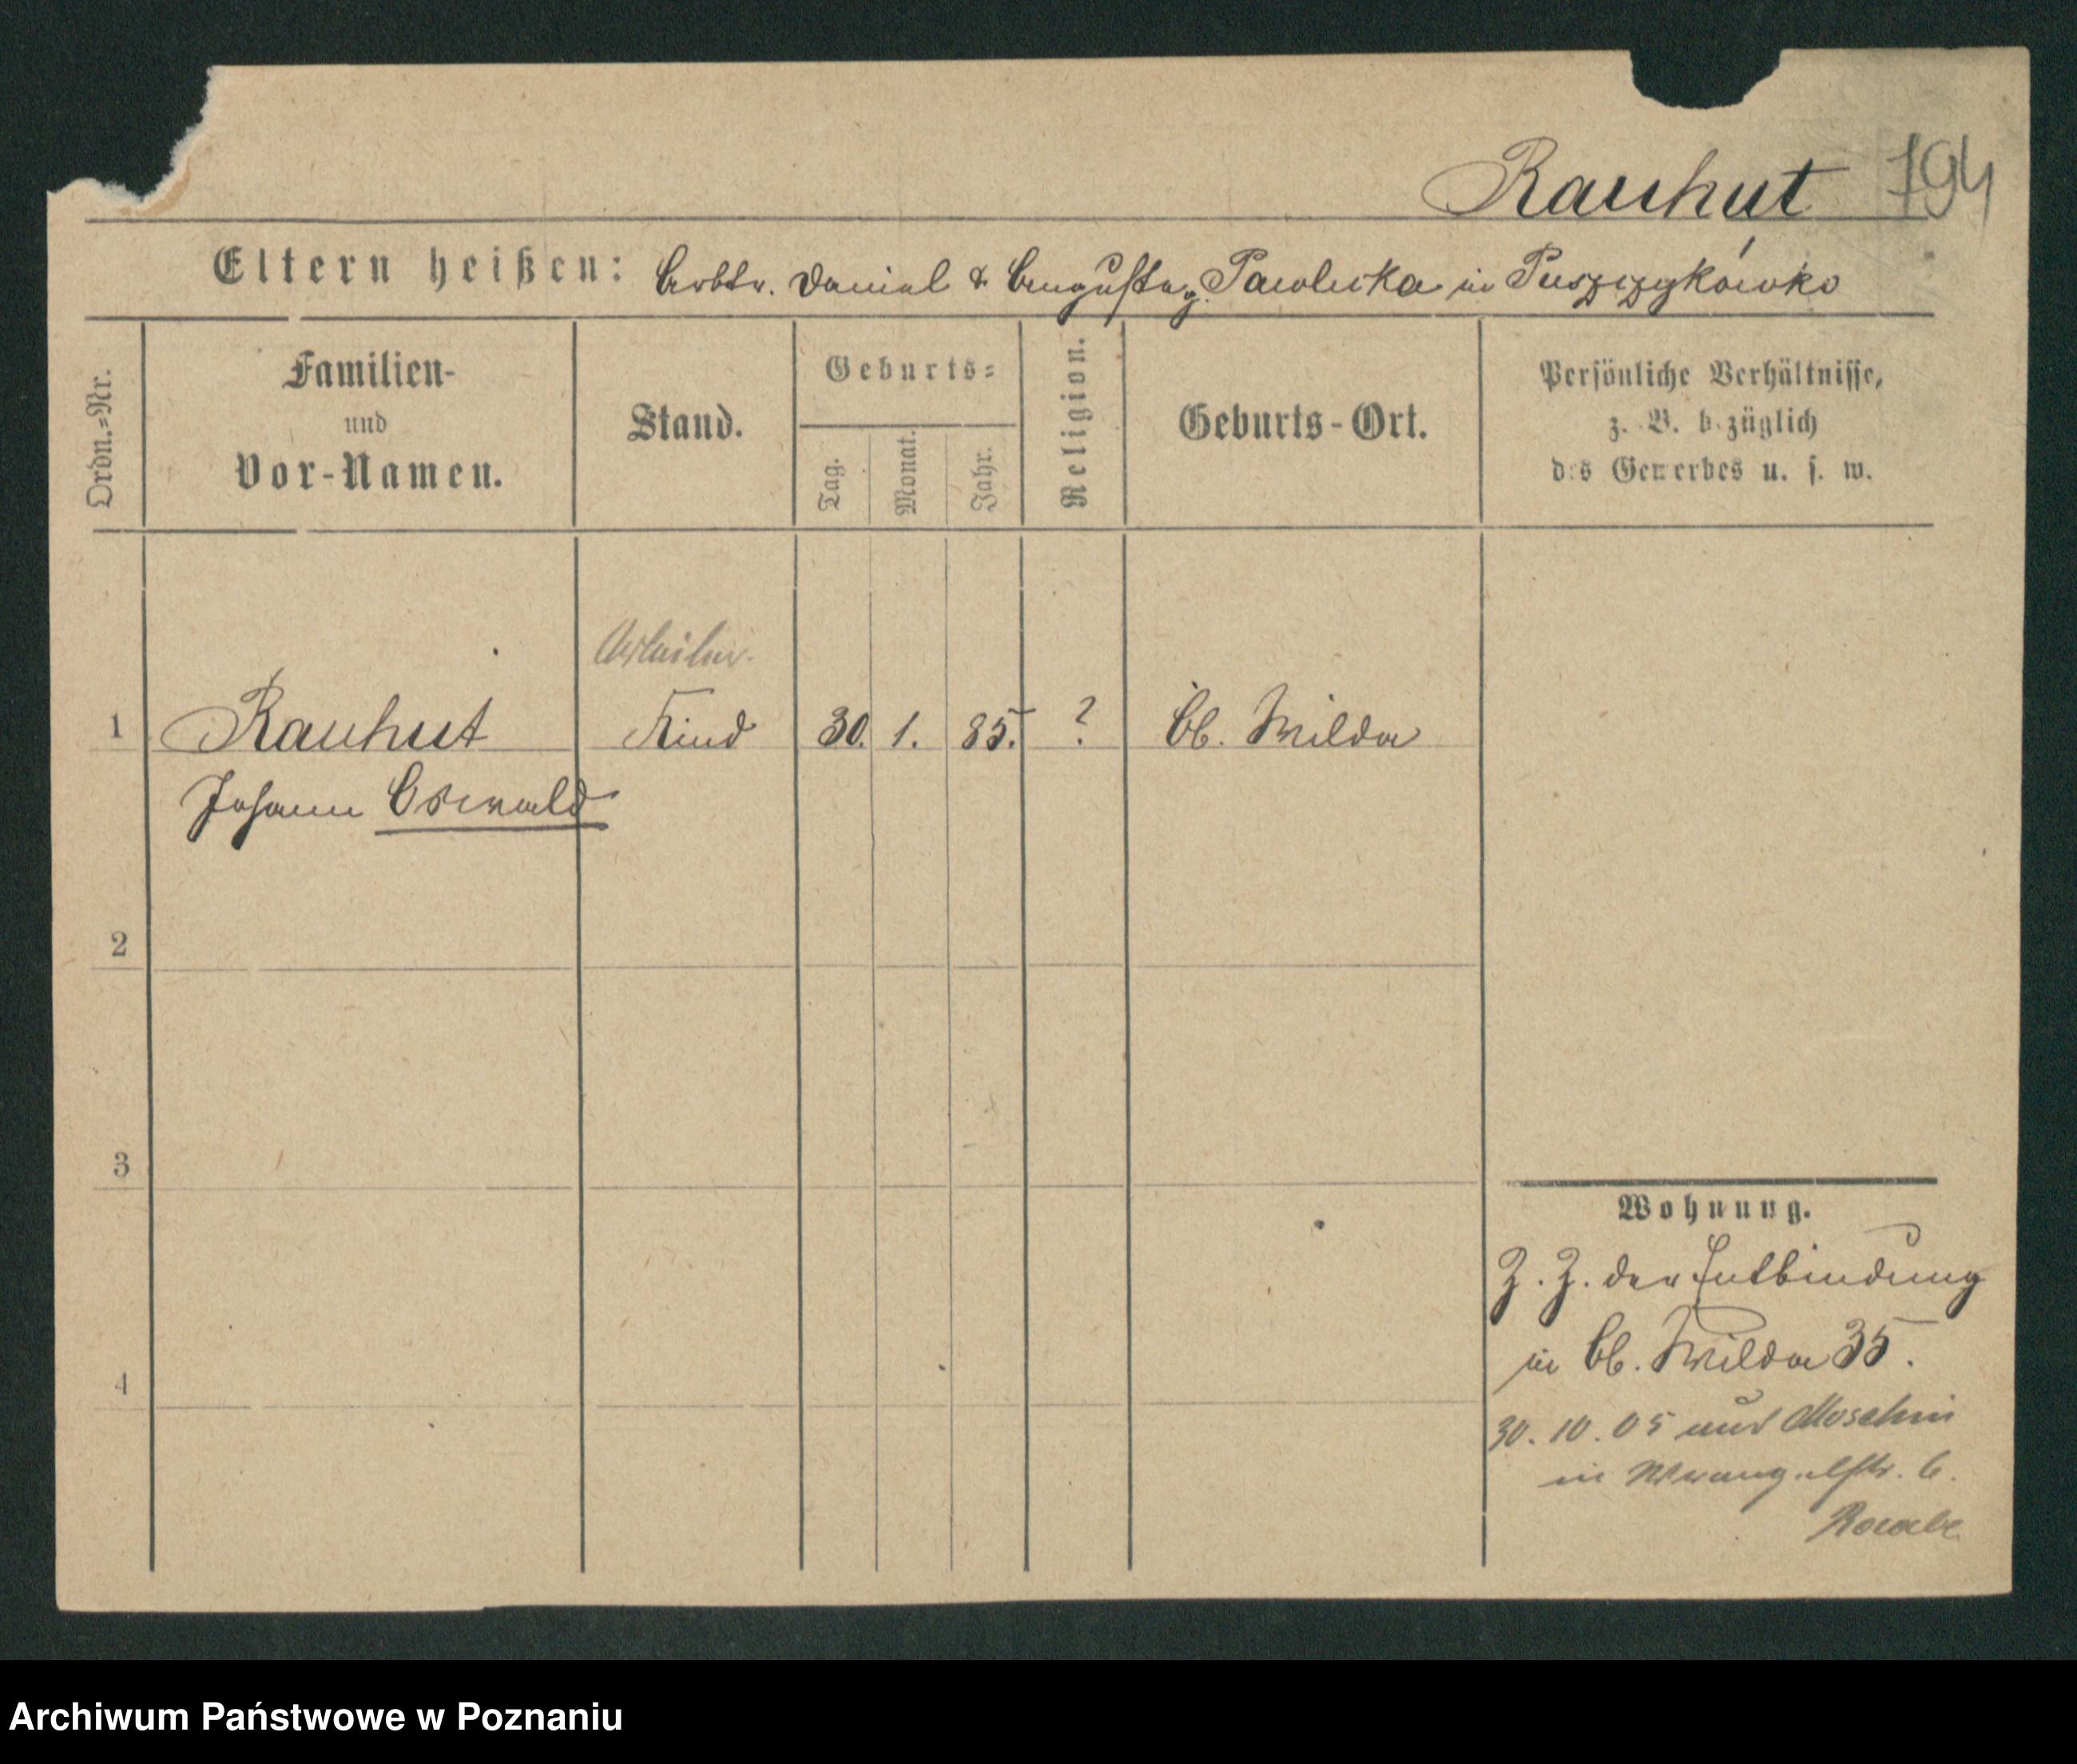 Rauhut 194
Eltern heißen: Arbtr. Daniel & Auguste g. Pawlicka in Puszczykówko
Ordn.=Nr.
Familien-
und
Vor-Namen.
Stand.
Geburts=
Tag.
Monat.
Jahr.
Religion.
Geburts-Ort.
Persönliche Verhältnisse,
z. B. bezüglich
des Gewerbes u. s. w.
Arbeiter.
1 Rauhut Kind 30. 1. 85. ? Ob. Wilda
Johann Oswald
2
3
4
Wohnung.
Z. Z. der Entbindung
in Ob. Wilda 35.
30. 10. 05 aus Moschin
in Wrangelstr. 6.
Archiwum Państwowe w Poznaniu